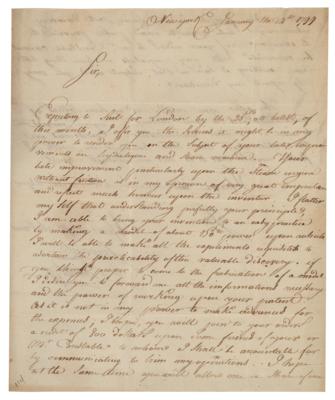 New york January the 12th 1799
Sir,
Expecting to Sail for London by the 25th, at latest, of
this month, I offer you the Service it might be in my
power to render you on the Subject of your late improve-
ments in hydraulicon and steam machine. Your
late improvement particularly upon the Steam engine
without friction, is in my opinion of very great importance
and reflect much honour upon the inventor. I flatter
my Self that understanding perfectly your principles,
I am able to bring your invention in an early practice
by making a model of about power upon which
I will be able to make all the experiments requisite to
ascertain the practicability of this valuable discovery. if
you think proper to come to the formation of a model
I beg you to forward me all the informations necessary
and the power of working upon your patent
but it is not in my power to make advances for
the expenses, I hope, you will join to your order
a credit of 800 dollars upon Some friend of yours or
Mr. Constable to whom I shall be accountable for
by communicating to him my operations. I hope
at the same time you will allow me a Share of